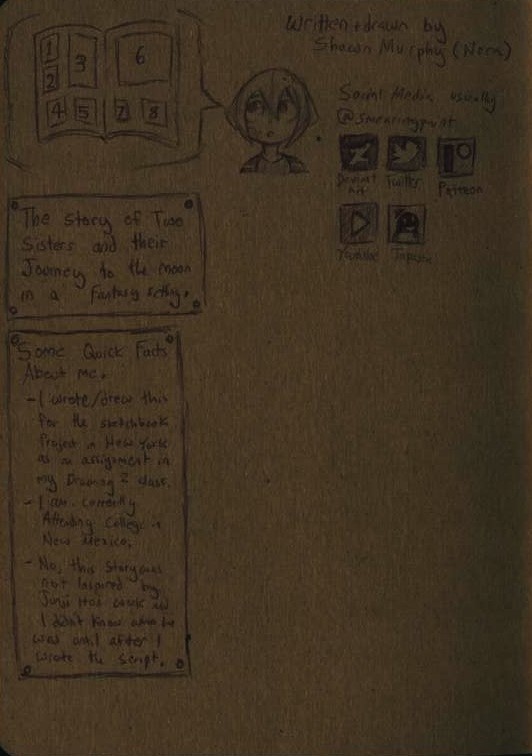 Written + drawn by
Shawn Murphy (Nera)
1
2
3
4 5
6
7 8
Social Media usually
@smearingpaint
Deviant
Art
Twitter
Patreon
Youtube
Tapastic
The story of Two
Sisters and their
Journey to the moon
in a Fantasy setting.
Some Quick Facts
About me.
- I wrote/drew this
for the sketchbook
Project in New York
as an assignment in
my Drawing 2 class.
- I am currently
Attending College in
New Mexico.
- No, this story was
not Inspired by
Junji Itos work as
I didn't know who he
was until after I
wrote the script.